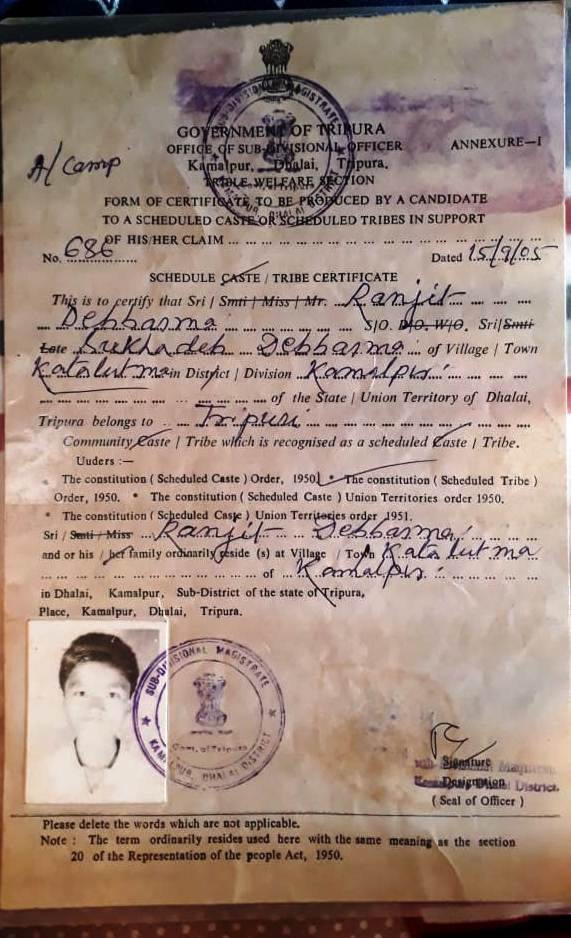 GOVERNMENT OF TRIPURA
OFFICE OF SUB-DIVISIONAL OFFICER
ANNEXURE—I
Kamalpur, Dhalai, Tripura.
A/Camp
TRIBLE WELFARE SECTION
FORM OF CERTIFICATE TO BE PRODUCED BY A CANDIDATE
TO A SCHEDULED CASTE OR SCHEDULED TRIBES IN SUPPORT
OF HIS/HER CLAIM ... ... ... ... ... ... ... ... ... ...
No. 686 Dated 15/9/05
SCHEDULE CASTE / TRIBE CERTIFICATE
This is to certify that Sri / Smti / Miss / Mr. Ranjit
Debbarma S/O. D/O. W/O. Sri/Smti
Late Sukhadeb Debbarma of Village / Town
Katalutma in District / Division Kamalpur
of the State / Union Territory of Dhalai,
Tripura belongs to Tripuri
Community Caste / Tribe which is recognised as a scheduled Caste / Tribe.
Uuders :—
The constitution ( Scheduled Caste ) Order, 1950 * The constitution ( Scheduled Tribe )
Order, 1950. * The constitution ( Scheduled Caste ) Union Territories order 1950.
* The constitution ( Scheduled Caste ) Union Territories order 1951.
Sri / Smti / Miss Ranjit Debbarma
and or his / her family ordinarily reside (s) at Village / Town Katalutma
of Kamalpur
in Dhalai, Kamalpur, Sub-District of the state of Tripura,
Place, Kamalpur, Dhalai, Tripura.
SUB-DIVISIONAL MAGISTRATE
Govt. of Tripura
KAMALPUR, DHALAI DISTRICT
Signature
Designation
Kamalpur Dhalai District.
( Seal of Officer )
Please delete the words which are not applicable.
Note : The term ordinarily resides used here with the same meaning as the section
20 of the Representation of the people Act, 1950.